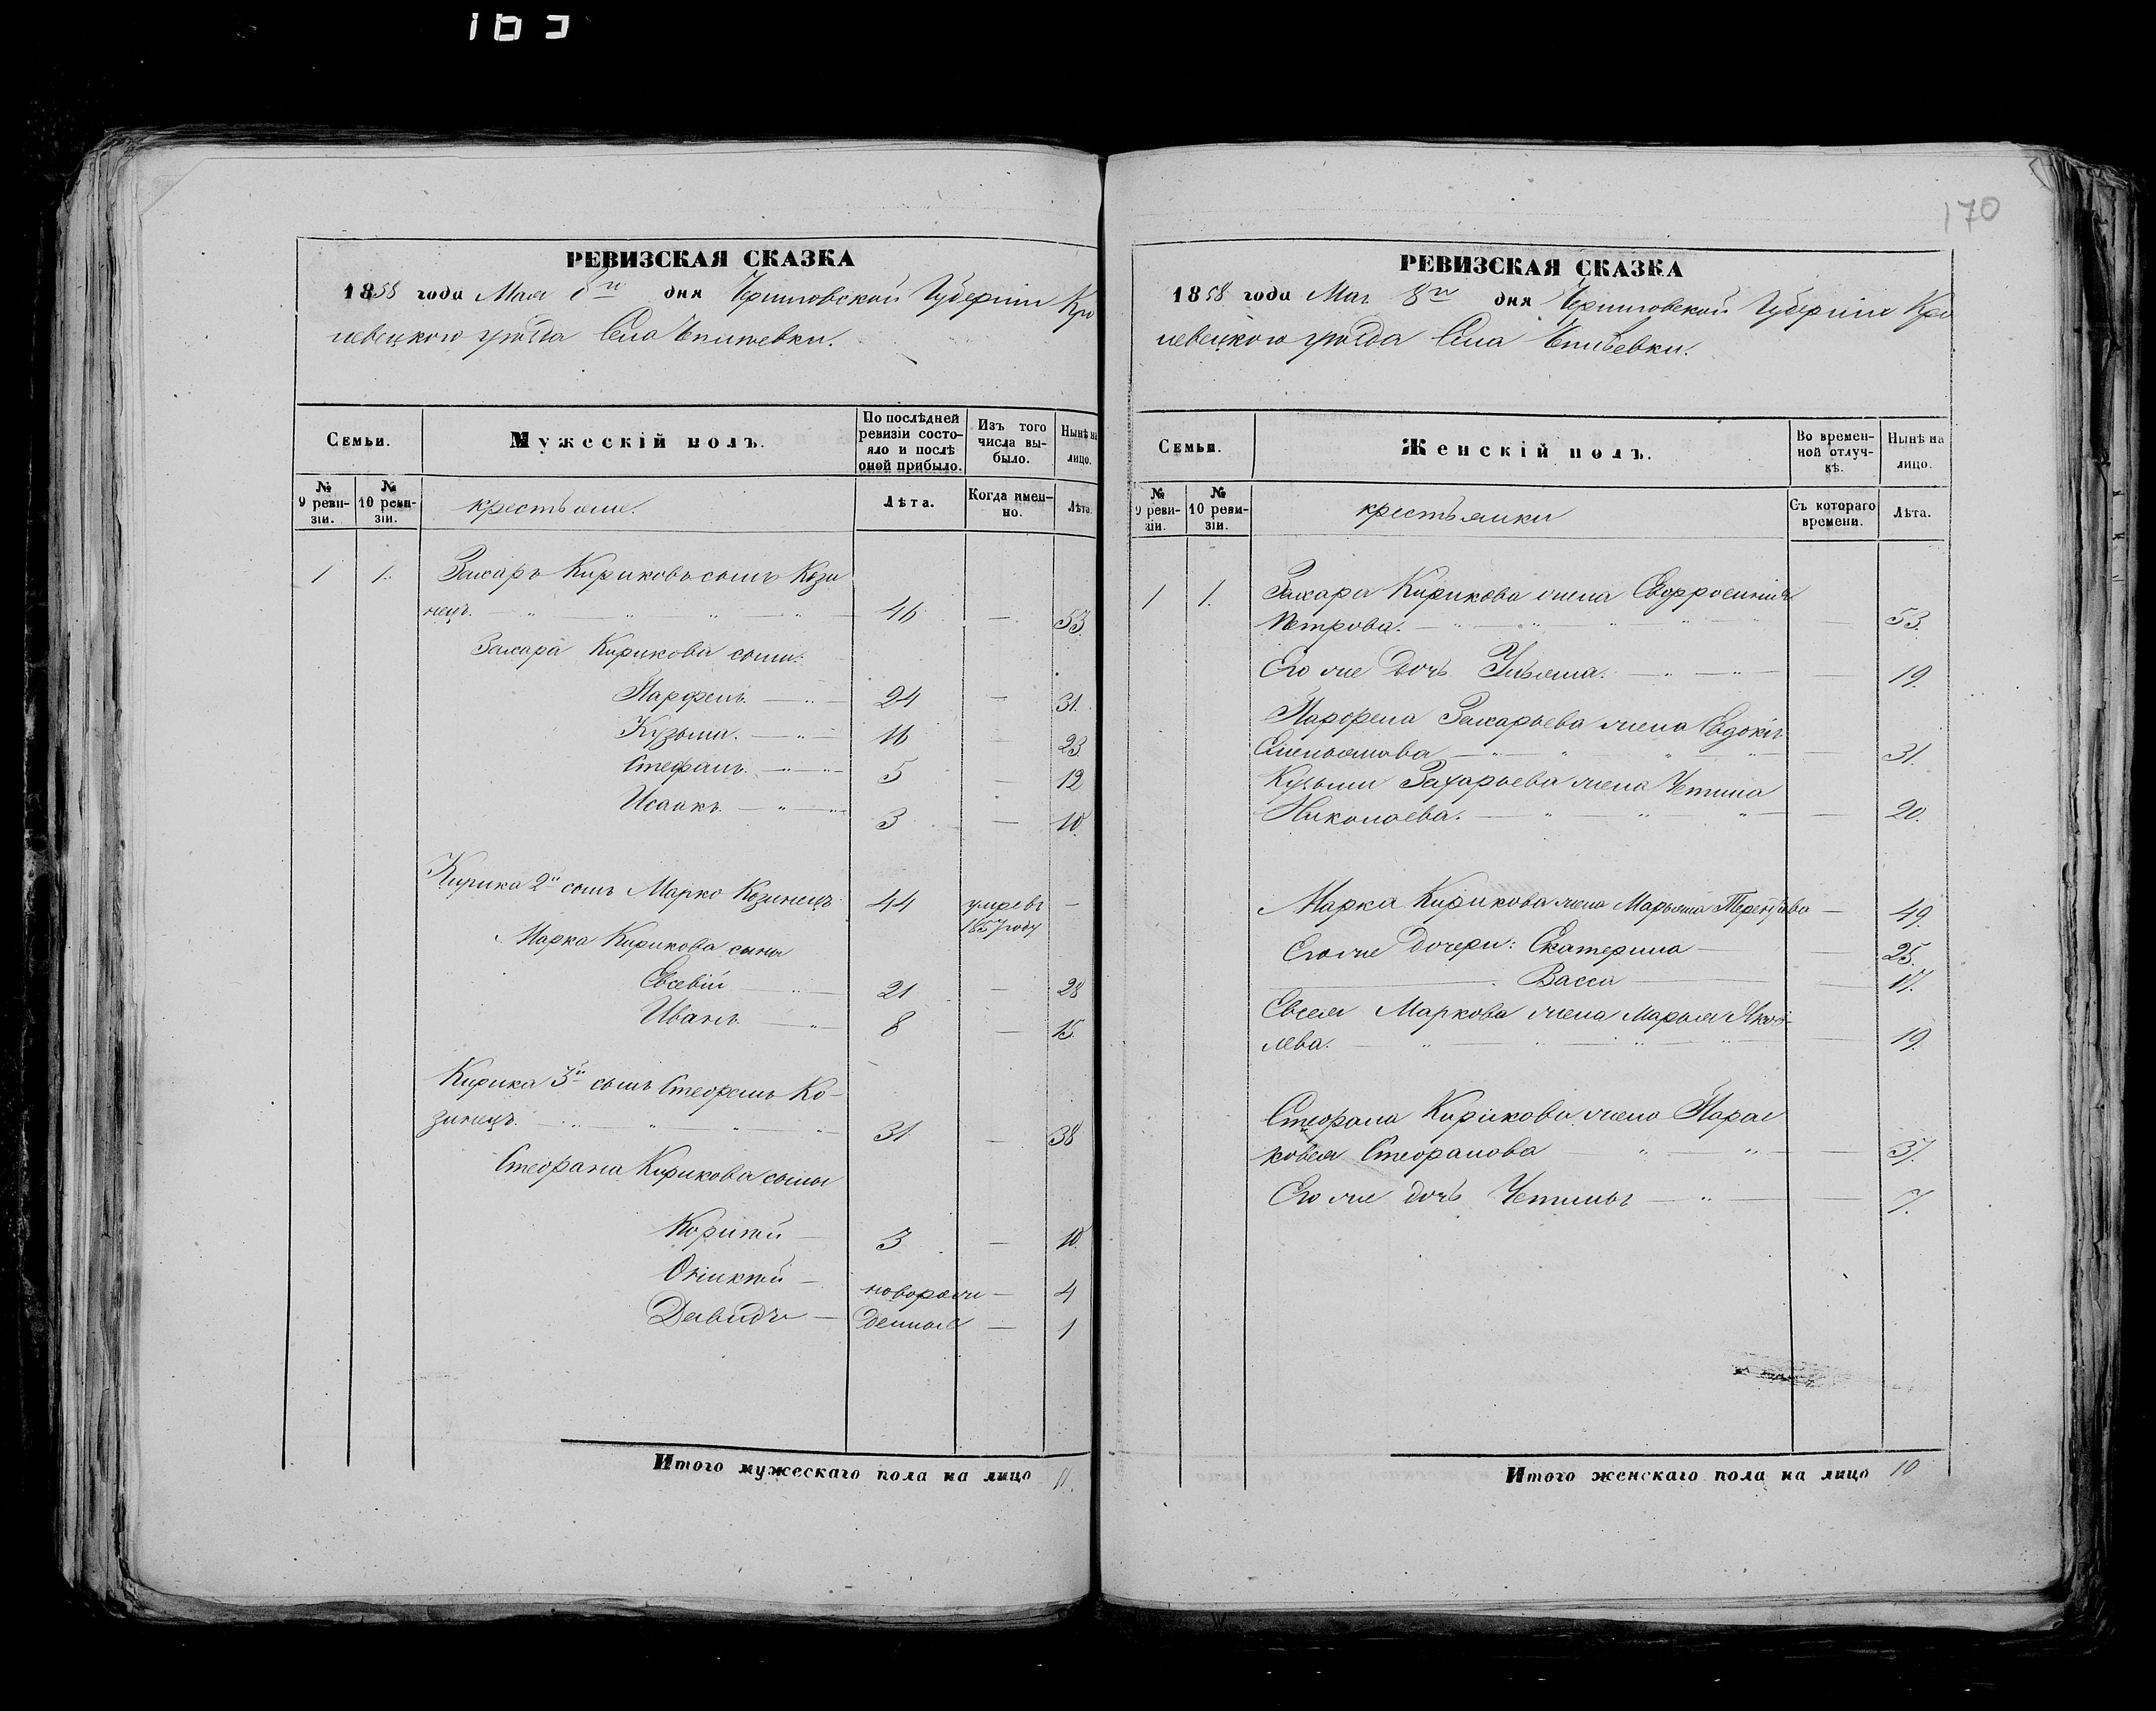 163
170
РЕВИЗСКАЯ СКАЗКА
1858 года Мая 8го дня Черниговской Губерніи Кро
левецкого уѣзда Села
Семьи.
Мужескій полъ.
По послѣдней ревизіи состояло и послѣ оной прибыло.
Изъ того числа выбыло.
Нынѣ на лицо.
№ 9 ревизіи.
№ 10 ревизіи.
крестьяне.
Лѣта.
Когда именно.
Лѣта.
1 1. Захаръ Кириковъ сынъ Кози
нецъ. 46 — 53.
Захара Кирикова сыны:
Парфенъ. 24 — 31.
Кузьма. 16 — 23
Стефанъ. 5 — 12
Исаакъ. 3 — 10.
Кирика 2й сынъ Марко Козинецъ 44 умревъ —
1857 году
Марка Кирикова сыны
Евсевій 21 — 28
Иванъ. 8 — 15.
Кирика 3й сынъ Стефанъ Ко-
зинецъ. 31. — 38
Стефана Кирикова сыны
3 — 10.
новорож — 4
Давидъ — денные — 1
Итого мужескаго пола на лицо 11.
РЕВИЗСКАЯ СКАЗКА
1858 года Мая 8го дня Черниговской Губерніи Кро
левецкого уѣзда Села
Семьи.
Женскій полъ.
Во временной отлучкѣ.
Нынѣ на лицо.
№ 9 ревизіи.
№ 10 ревизіи.
крестьянки
Съ котораго времени.
Лѣта.
1 1. Захара Кирикова жена Евфросинія
Петрова. — 53.
Его же дочь Ульяна. — 19.
Парфена Захарьева жена Евдокія
Емельянова — 31.
Кузьмы Захарьева жена Устина
Николаева. — 20.
Марка Кирикова жена Марьяна Терентьева — 49.
Его же дочери: Екатерина — 25.
Васса — 17.
Евсея Маркова жена Марья Яков-
лева. — 19.
Стефана Кирикова жена Парас
ковея Стефанова — 37.
Его же дочь — 7.
Итого женскаго пола на лицо 10